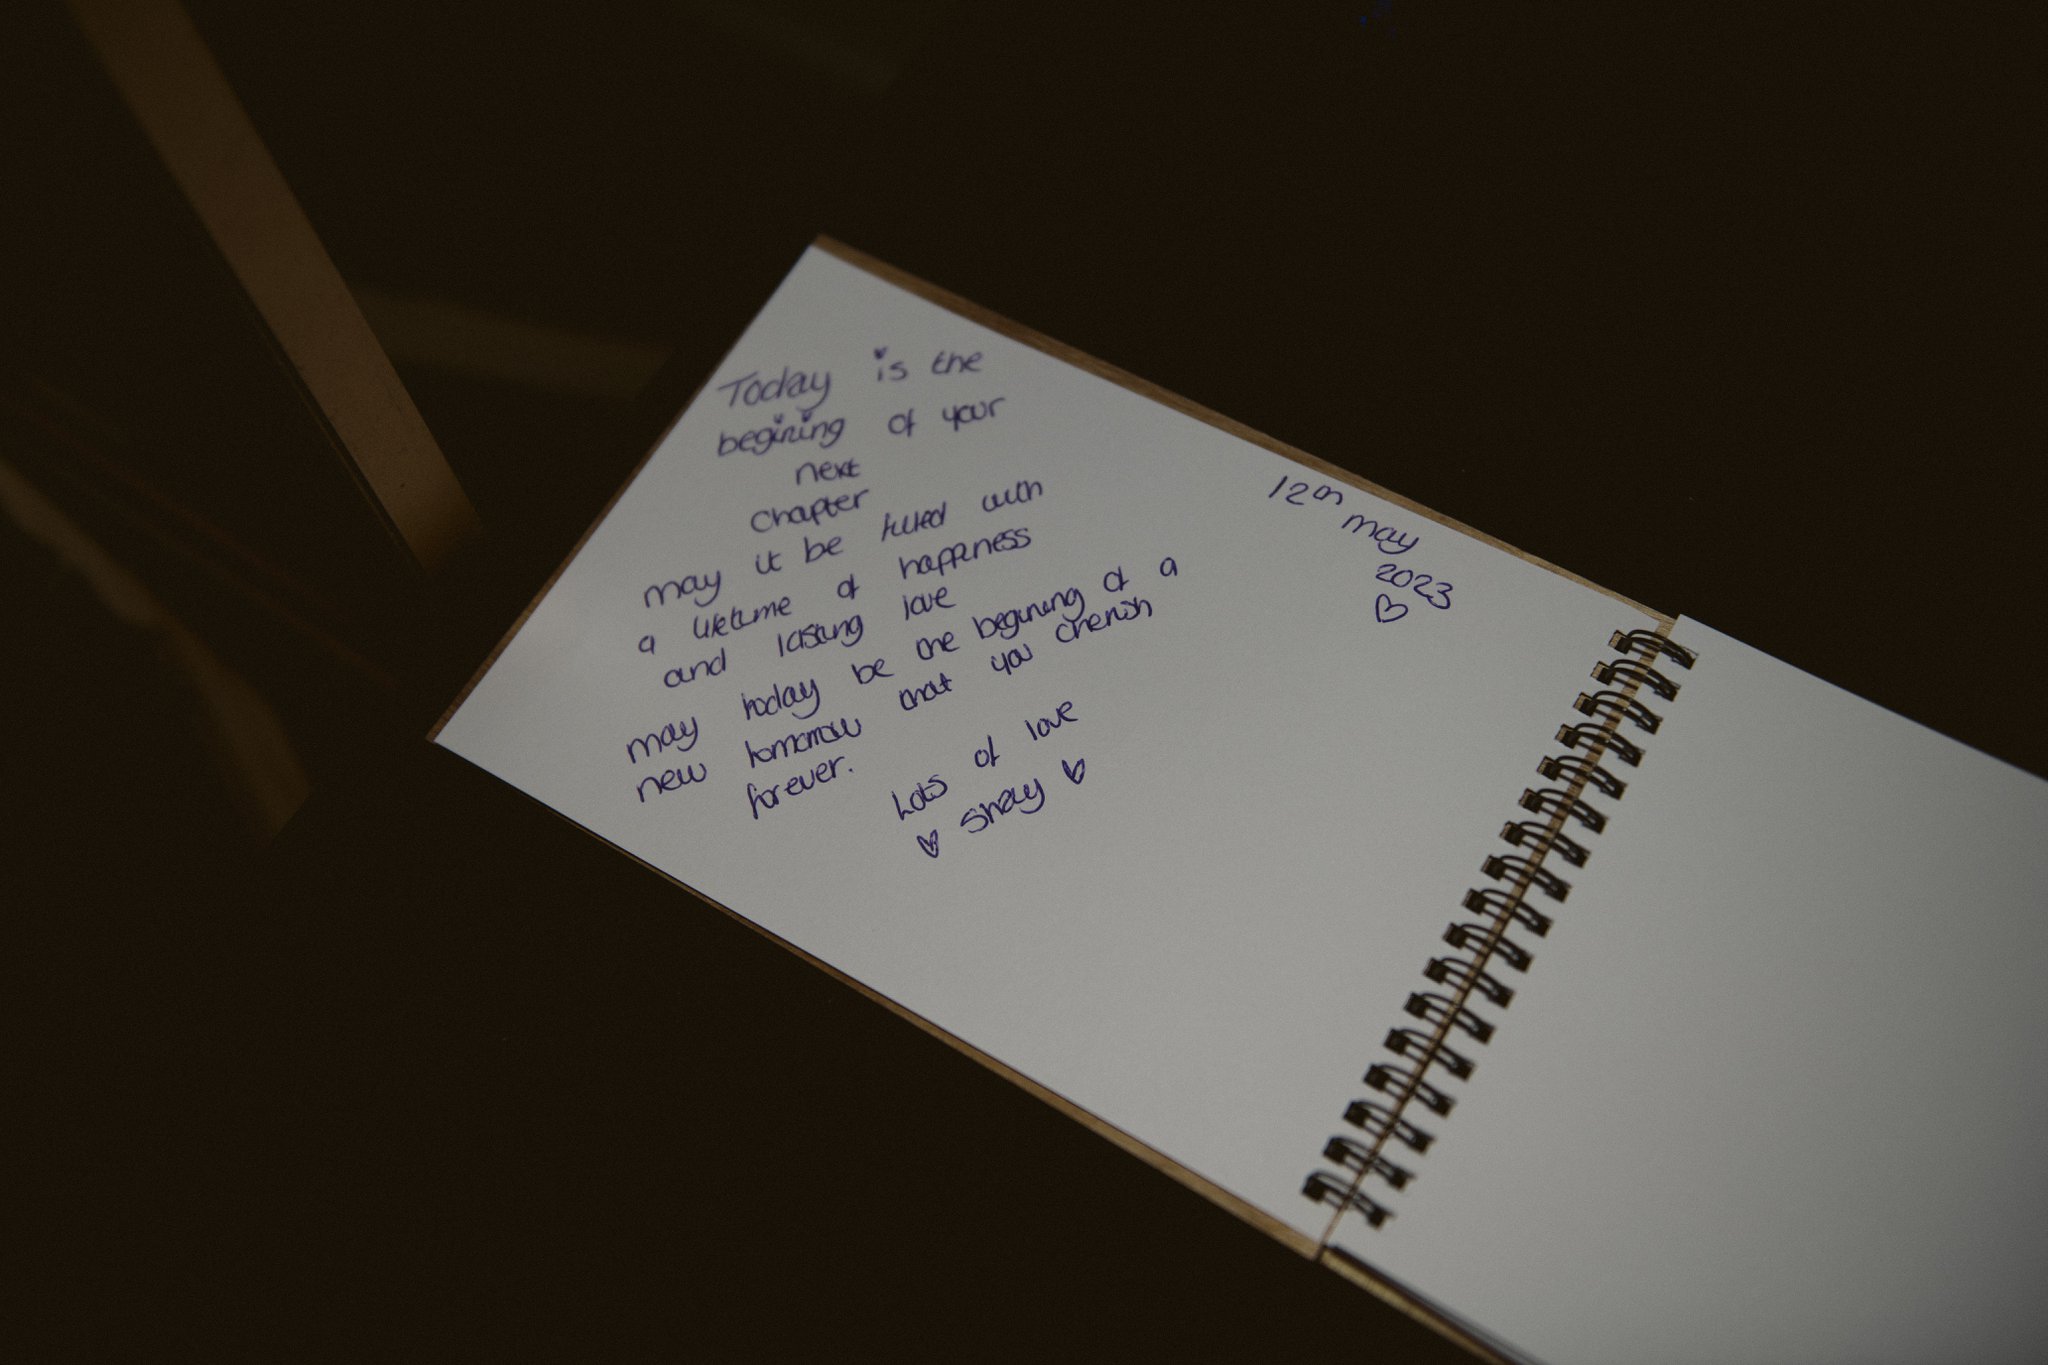 Today is the
begining of your
next
Chapter
may it be filled with
a lifetime of happiness
and lasting love
may today be the begining of a
new tomorrow that you cherish
forever.
Lots of love
♥ Shay ♥
12th
may
2023
♡